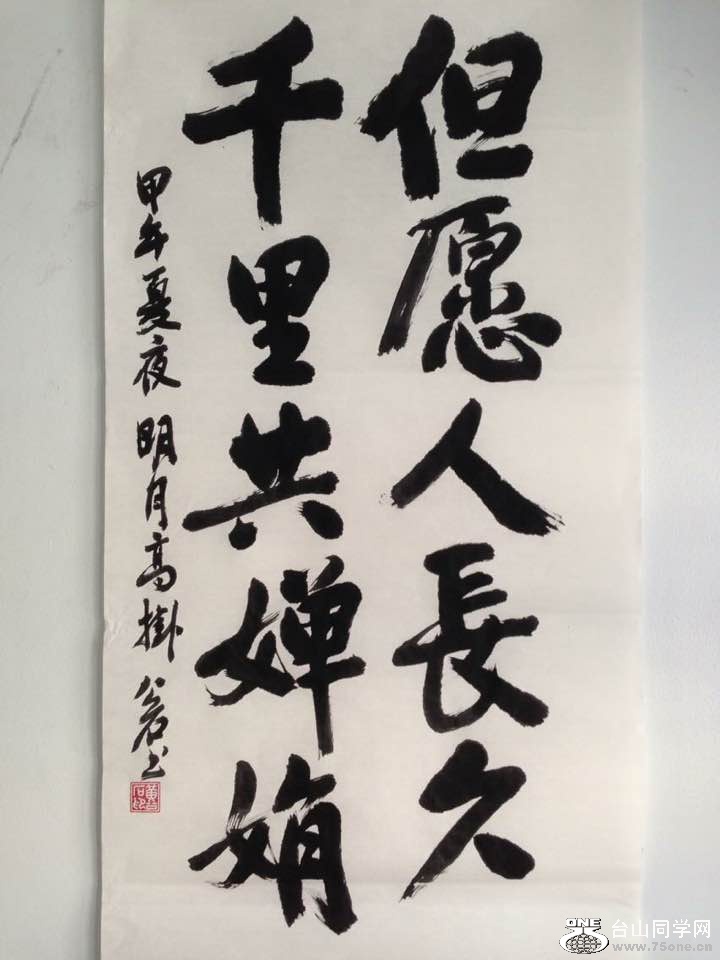 但愿人長久
千里共婵娟
甲午夏夜 明月高掛 公石书
ONE
台山同学网
www.75one.com